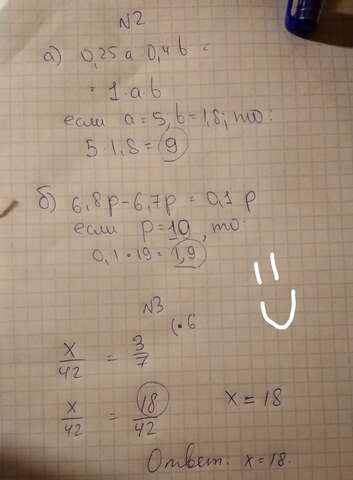 N2
а) 0,25 a 0,4 b =
= 1·a·b
если a = 5, b = 1,8; то:
5·1,8 = 9
б) 6,8p - 6,7p = 0,1 p
если p = 19, то:
0,1·19 = 1,9
N3
(·6
x/42 = 3/7
x/42 = 18/42 x = 18
Ответ: x = 18.